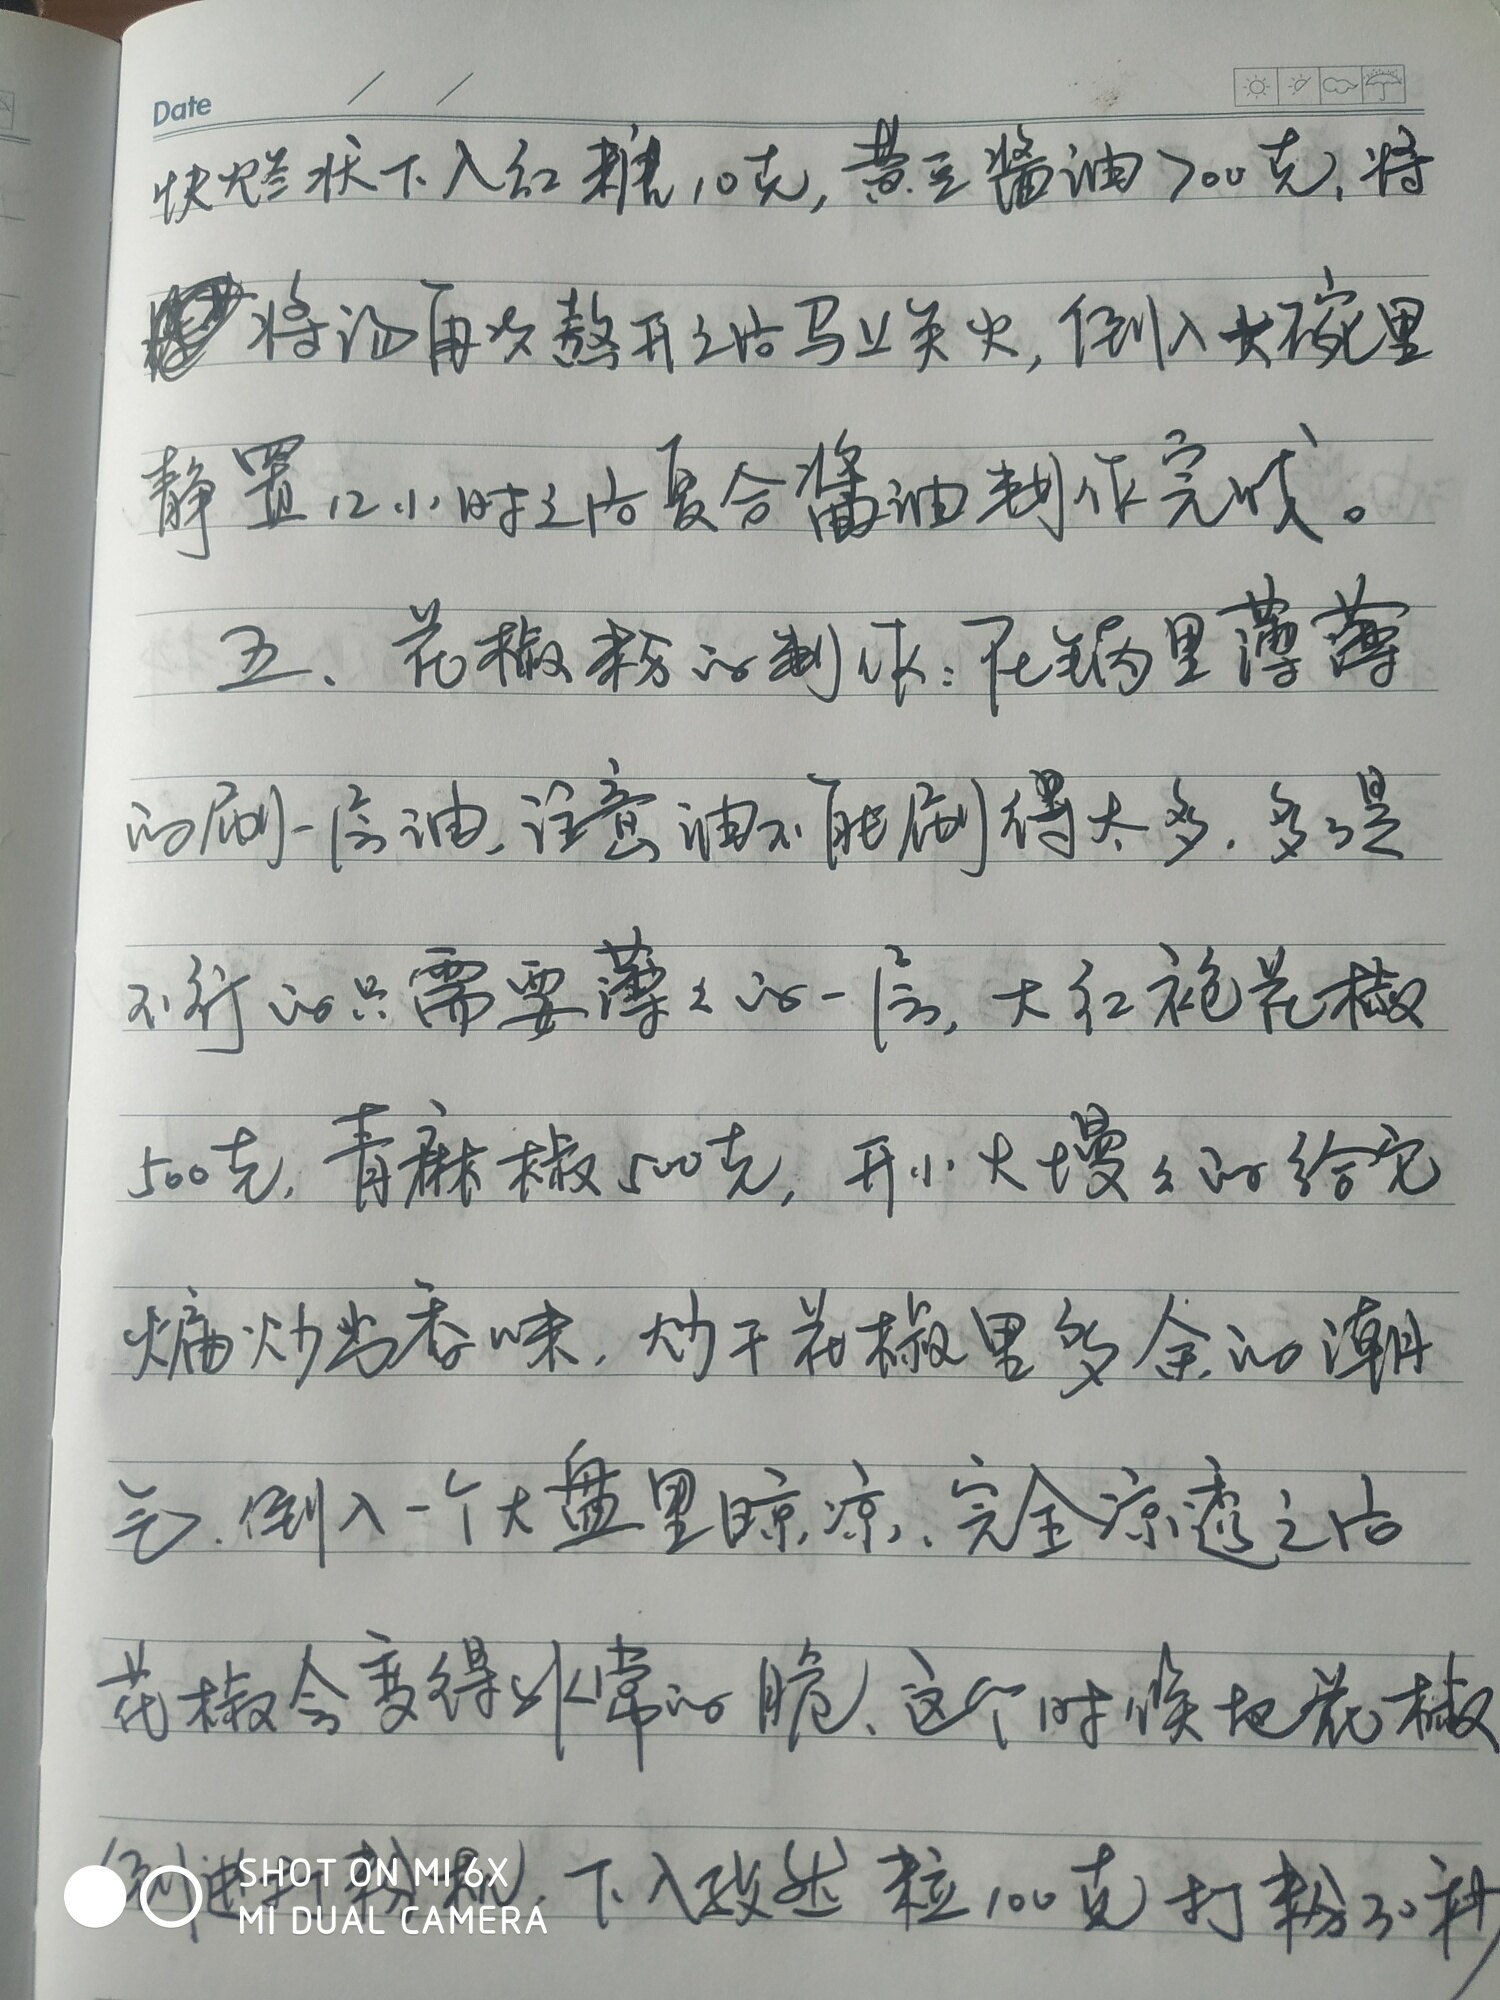 Date / /
快烂状下入红糖10克,黄豆酱油700克,将
将油再次熬开之后马上关火,倒入大碗里
静置12小时之后复合酱油制作完成。
五、花椒粉的制作:在锅里薄薄
的刷一层油,注意油不能刷得太多,多了是
不行的只需要薄々的一层,大红袍花椒
500克,青麻椒500克,开小火慢々的给它
煸炒出香味,炒干花椒里多余的潮
气,倒入一个大盘里晾凉,完全凉透之后
花椒会变得非常的脆,这个时候把花椒
倒进打粉机,下入孜然粒100克打粉30秒
SHOT ON MI 6X
MI DUAL CAMERA